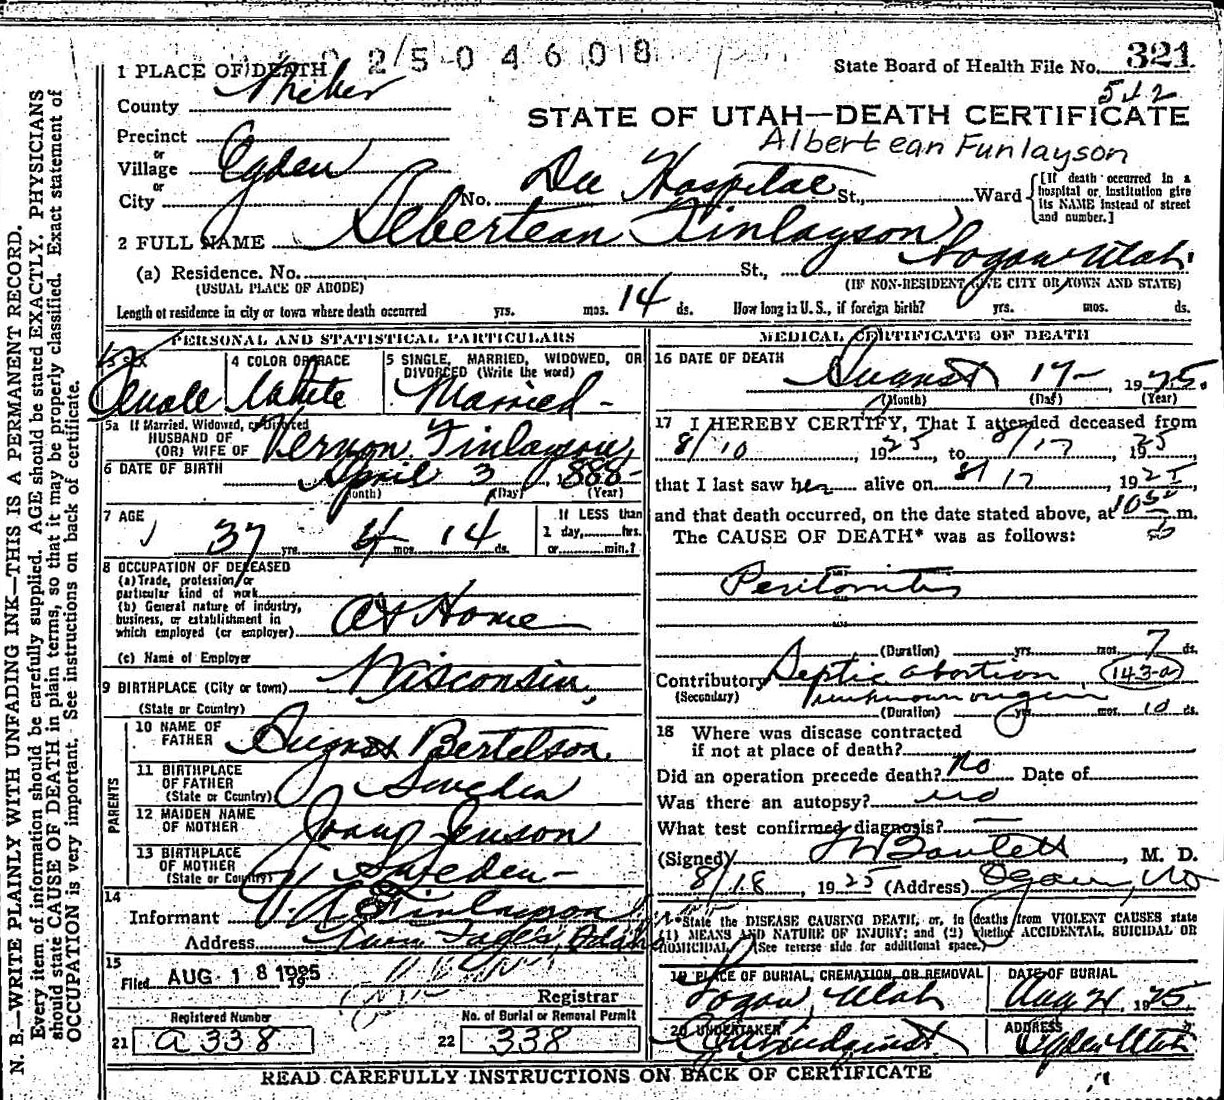 2/5-0 4 6 0 8
1 PLACE OF DEATH
State Board of Health File No. 321
County Weber
STATE OF UTAH—DEATH CERTIFICATE
Precinct
or
Albertean Funlayson
Village
or
Ogden
City
No. Dee Hospital St., Ward
[If death occurred in a hospital or institution give its NAME instead of street and number.]
2 FULL NAME Albertean Finlayson
(a) Residence. No. St., Logan Utah
(USUAL PLACE OF ABODE) (IF NON-RESIDENT GIVE CITY OR TOWN AND STATE)
Length of residence in city or town where death occurred yrs. mos. 14 ds. How long in U. S., if foreign birth? yrs. mos. ds.
PERSONAL AND STATISTICAL PARTICULARS
3 SEX
Female
4 COLOR OR RACE
White
5 SINGLE, MARRIED, WIDOWED, OR
DIVORCED (Write the word)
Married
5a If Married, Widowed, or Divorced
HUSBAND OF
(OR) WIFE OF Vernon Finlayson
6 DATE OF BIRTH April 3 1888
(Month) (Day) (Year)
7 AGE
37 yrs. 4 mos. 14 ds.
If LESS than
1 day, hrs.
or min.?
8 OCCUPATION OF DECEASED
(a) Trade, profession, or
particular kind of work
(b) General nature of industry,
business, or establishment in
which employed (or employer) At Home
(c) Name of Employer
9 BIRTHPLACE (City or town) Wisconsin
(State or Country)
PARENTS
10 NAME OF
FATHER August Bertelson
11 BIRTHPLACE
OF FATHER
(State or Country) Sweden
12 MAIDEN NAME
OF MOTHER Jenson
13 BIRTHPLACE
OF MOTHER
(State or Country) Sweden
14
Informant Finlayson
Address Twin Falls, Idaho
15
Filed AUG 18 1925
Registrar
Registered Number
21 a 338
No. of Burial or Removal Permit
22 338
MEDICAL CERTIFICATE OF DEATH
16 DATE OF DEATH
August 17 — , 1925.
(Month) (Day) (Year)
17 I HEREBY CERTIFY, That I attended deceased from
8/10 , 1925, to 8/17 , 1925
that I last saw her alive on 8/17 , 1925
and that death occurred, on the date stated above, at 10 50 m.
The CAUSE OF DEATH* was as follows:
Peritonitis
(Duration) yrs. mos. 7 ds.
Contributory Septic abortion (143-a)
(Secondary) unknown origin
(Duration) yrs. mos. 10 ds.
18 Where was disease contracted
if not at place of death?
Did an operation precede death? No Date of
Was there an autopsy? no
What test confirmed diagnosis? —
(Signed) Bartlett , M. D.
8/18 , 1925 (Address) Ogden, Ut
*State the DISEASE CAUSING DEATH, or, in deaths from VIOLENT CAUSES state
(1) MEANS AND NATURE OF INJURY; and (2) whether ACCIDENTAL, SUICIDAL OR
HOMICIDAL. (See reverse side for additional space.)
19 PLACE OF BURIAL, CREMATION, OR REMOVAL
Logan, Utah
DATE OF BURIAL
Aug 21, 1925
20 UNDERTAKER
Lindquist
ADDRESS
Ogden Utah
READ CAREFULLY INSTRUCTIONS ON BACK OF CERTIFICATE
N. B.—WRITE PLAINLY WITH UNFADING INK—THIS IS A PERMANENT RECORD.
Every item of information should be carefully supplied. AGE should be stated EXACTLY. PHYSICIANS
should state CAUSE OF DEATH in plain terms, so that it may be properly classified. Exact statement of
OCCUPATION is very important. See instructions on back of certificate.